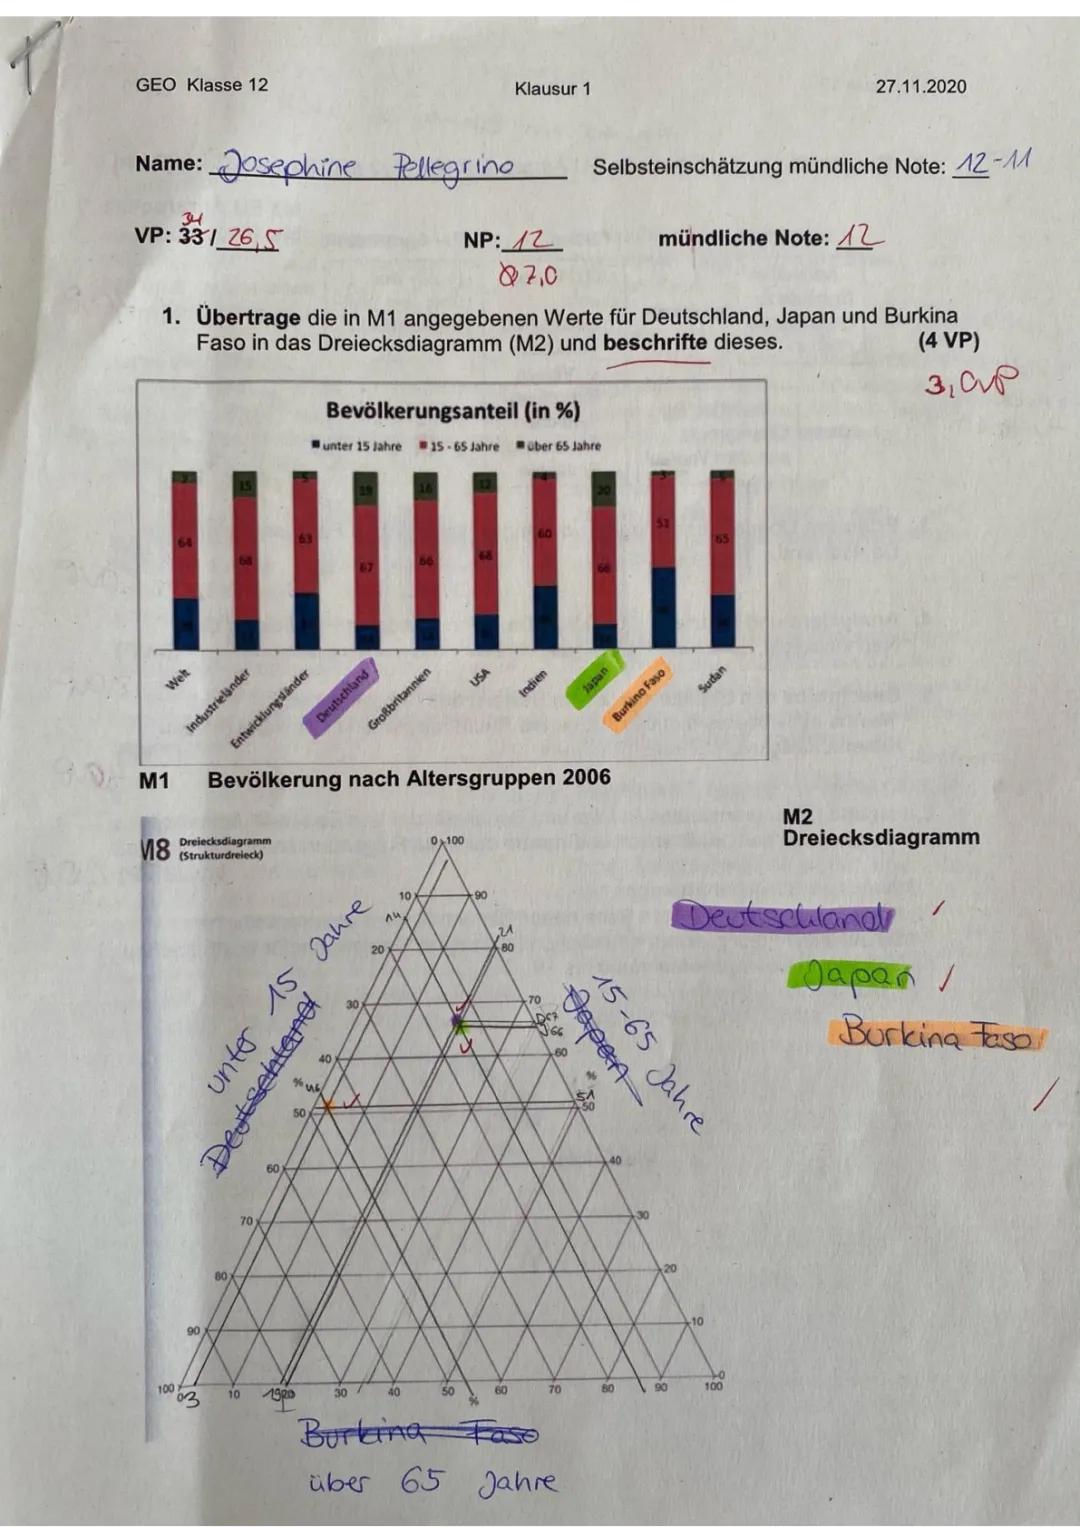 GEO Klasse 12 Klausur 1 27.11.2020
Name: Josephine Pellegrino Selbsteinschätzung mündliche Note: 12-11
34
VP: 33 / 26,5 NP: 12 mündliche Note: 12
7,0
1. Übertrage die in M1 angegebenen Werte für Deutschland, Japan und Burkina
Faso in das Dreiecksdiagramm (M2) und beschrifte dieses. (4 VP)
3,0VP
Bevölkerungsanteil (in %)
unter 15 Jahre 15 - 65 Jahre über 65 Jahre
15 5 19 16 12 4 20 3
64 68 63 67 66 68 60 66 51 65
Welt Industrieländer Entwicklungsländer Deutschland Großbritannien USA Indien Japan Burkino Faso Sudan
M1 Bevölkerung nach Altersgruppen 2006
M2
Dreiecksdiagramm
M8 Dreiecksdiagramm
(Strukturdreieck)
0 100
10 90
14
21
20 80
30 70
D67
J66
40 60
% 46 %
51
50 50
60 40
70 30
80 20
90 10
100 0
03 10 1920 30 40 50 60 70 80 90 100
%
Deutschland
Japan
Burkina Faso
unter 15 Jahre
Deutschland
15-65 Jahre
Japan
Burkina Faso
über 65 Jahre